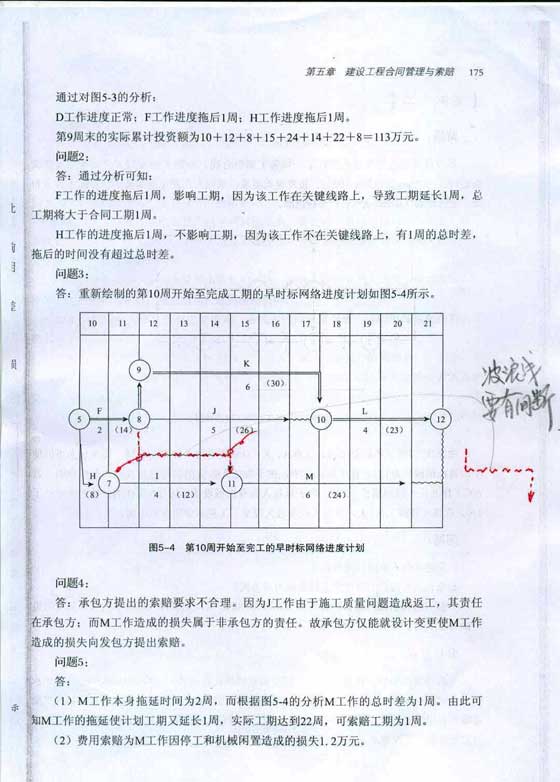 第五章 建设工程合同管理与索赔 175
通过对图5-3的分析：
D工作进度正常；F工作进度拖后1周；H工作进度拖后1周。
第9周末的实际累计投资额为10+12+8+15+24+14+22+8=113万元。
问题2：
答：通过分析可知：
F工作的进度拖后1周，影响工期，因为该工作在关键线路上，导致工期延长1周，总
工期将大于合同工期1周。
H工作的进度拖后1周，不影响工期，因为该工作不在关键线路上，有1周的总时差，
拖后的时间没有超过总时差。
问题3：
答：重新绘制的第10周开始至完成工期的早时标网络进度计划如图5-4所示。
10 11 12 13 14 15 16 17 18 19 20 21
9 K
6 （30）
5 F 8 J 10 L 12
2 （14） 5 （26） 4 （23）
H 7 I 11 M
（8） 4 （12） 6 （24）
波浪线
要有间断
图5-4 第10周开始至完工的早时标网络进度计划
问题4：
答：承包方提出的索赔要求不合理。因为J工作由于施工质量问题造成返工，其责任
在承包方；而M工作造成的损失属于非承包方的责任。故承包方仅能就设计变更使M工作
造成的损失向发包方提出索赔。
问题5：
答：
（1）M工作本身拖延时间为2周，而根据图5-4的分析M工作的总时差为1周。由此可
知M工作的拖延使计划工期又延长1周，实际工期达到22周，可索赔工期为1周。
（2）费用索赔为M工作因停工和机械闲置造成的损失1.2万元。